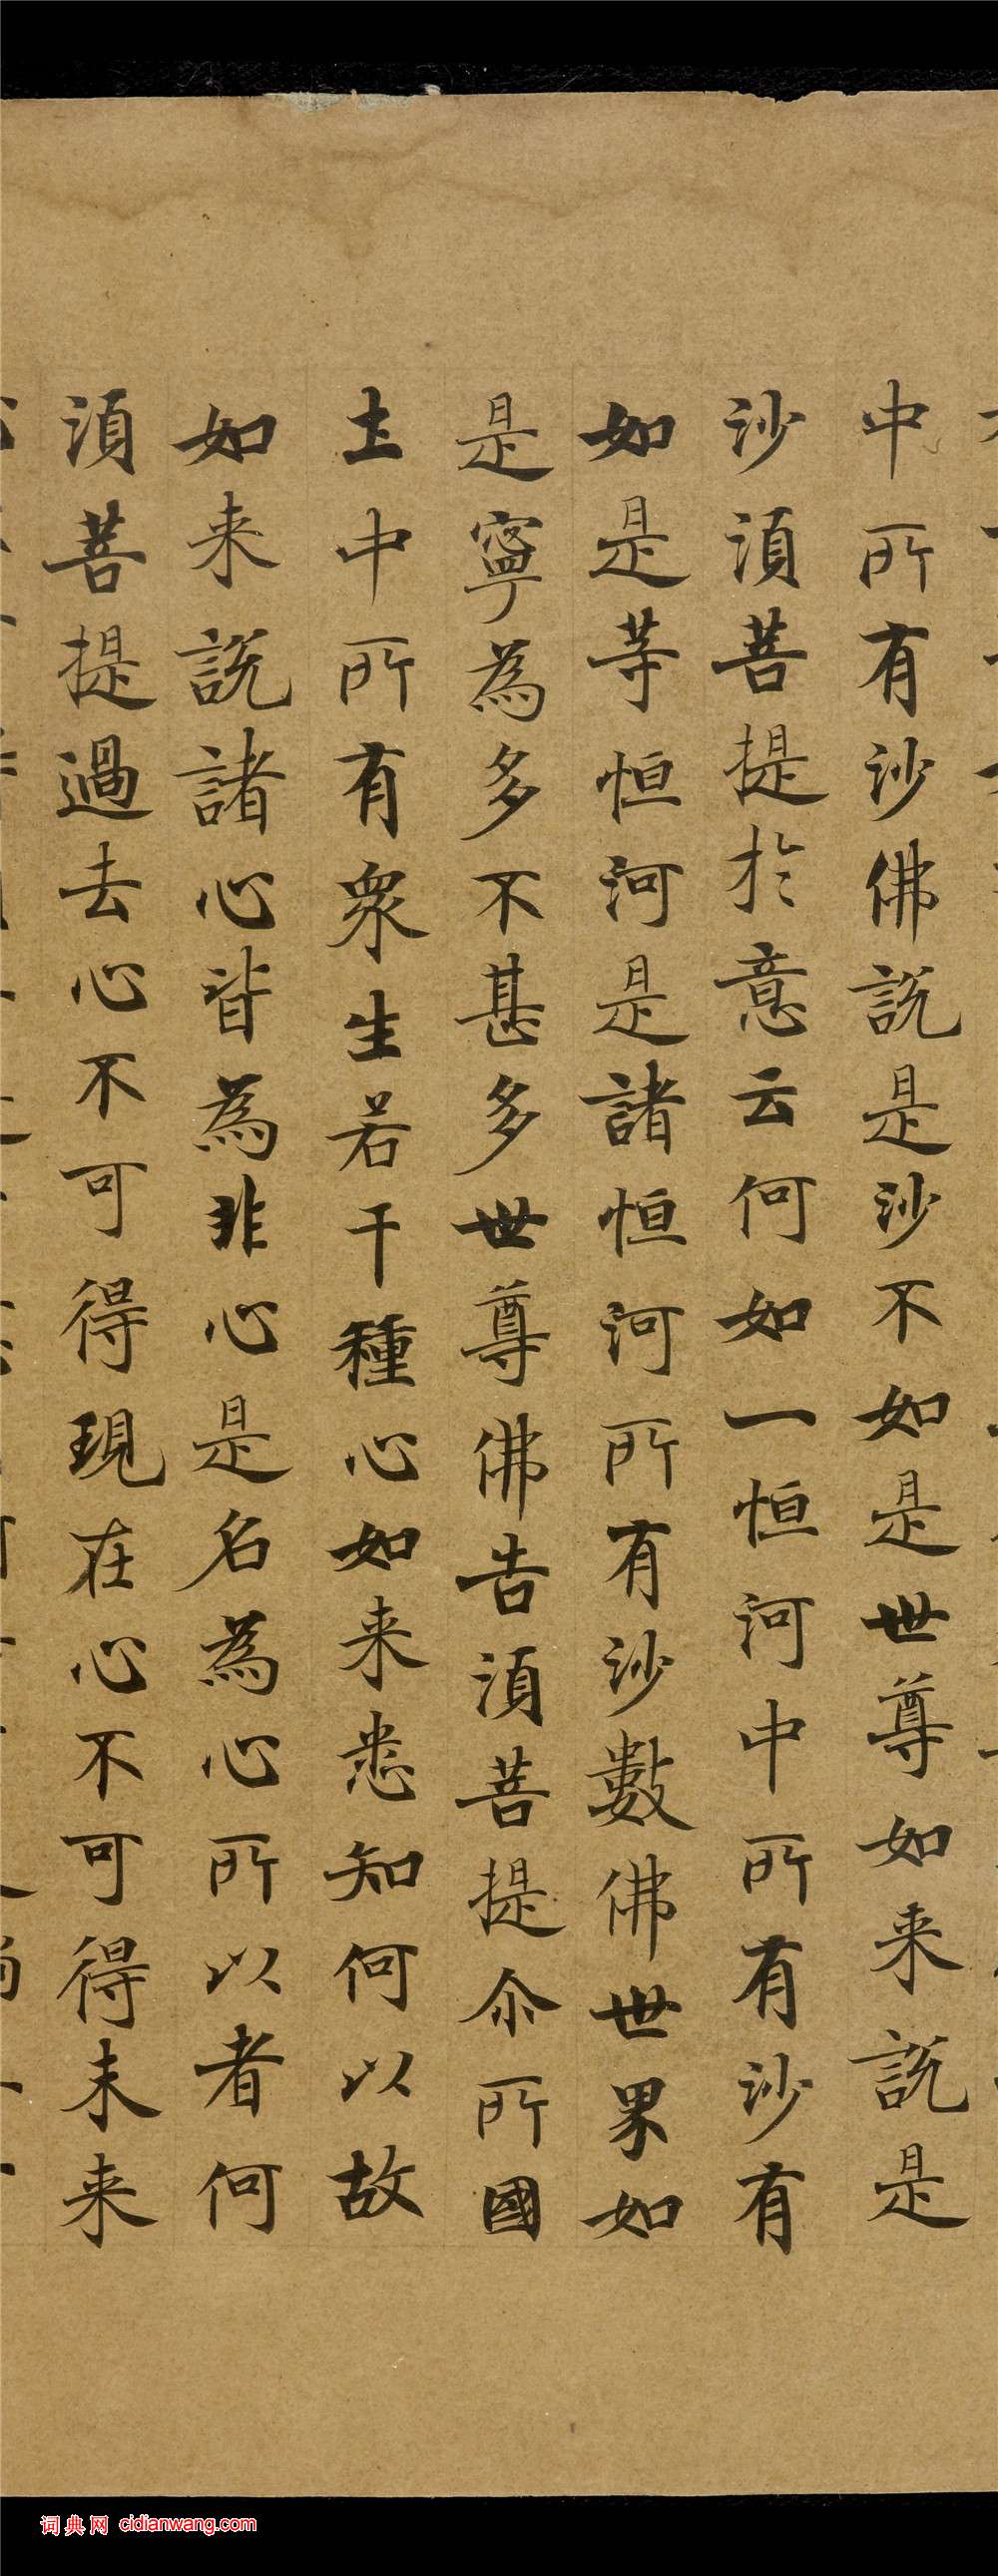 中所有沙佛説是沙不如是世尊如来説是
沙湏菩提於意云何如一恒河中所有沙有
如是等恒河是諸恒河所有沙數佛世界如
是寧為多不甚多世尊佛告湏菩提尒所國
土中所有衆生若干種心如来悉知何以故
如来説諸心皆為非心是名為心所以者何
湏菩提過去心不可得現在心不可得未来
词典网 cidianwang.com